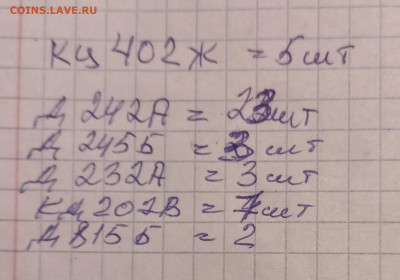 COINS.LAVE.RU
КЦ 402Ж = 5 шт
Д 242А = 23 шт
Д 245Б = 3 шт
Д 232А = 3 шт
КД 202В = 7 шт
Д 815Б = 2